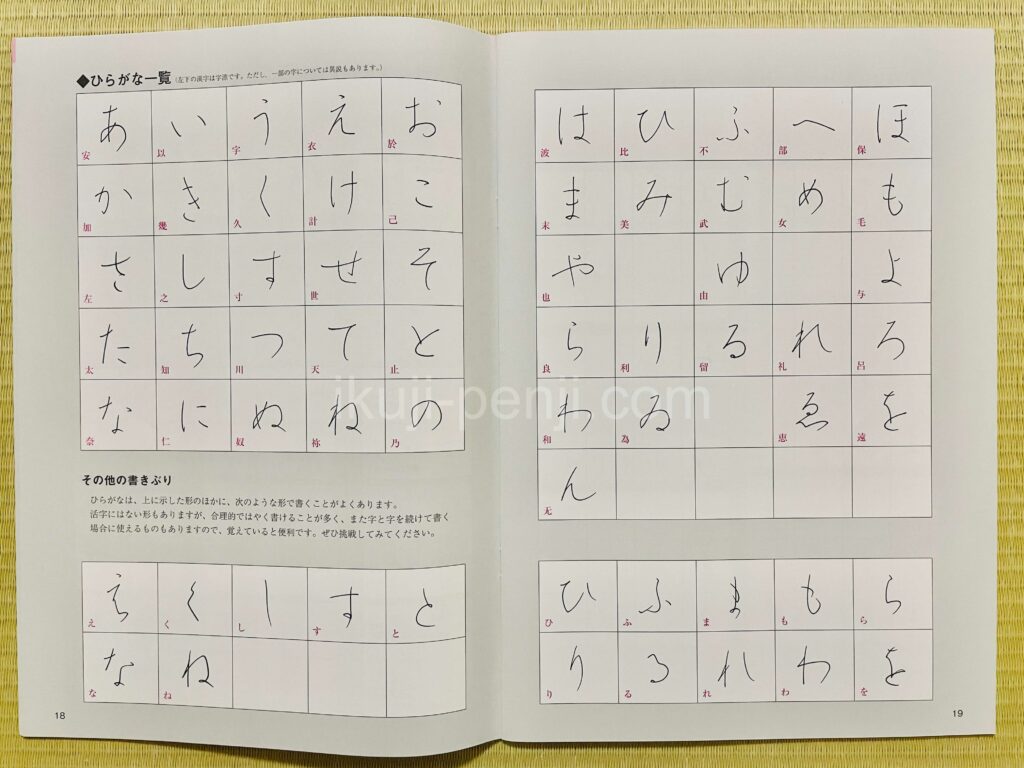 ◆ひらがな一覧 (左下の漢字は字源です。ただし、一部の字については異説もあります。)
あ い う え お
安 以 宇 衣 於
か き く け こ
加 幾 久 計 己
さ し す せ そ
左 之 寸 世
た ち つ て と
太 知 川 天 止
な に ぬ ね の
奈 仁 奴 祢 乃
その他の書きぶり
ひらがなは、上に示した形のほかに、次のような形で書くことがよくあります。
活字にはない形もありますが、合理的ではやく書けることが多く、また字と字を続けて書く
場合に使えるものもありますので、覚えていると便利です。ぜひ挑戦してみてください。
え く し す と
え く し す と
な ね
な ね
18
は ひ ふ へ ほ
波 比 不 部 保
ま み む め も
末 美 武 女 毛
や ゆ よ
也 由 与
ら り る れ ろ
良 利 留 礼 呂
わ ゐ ゑ を
和 為 恵 遠
ん
无
ひ ふ ま も ら
ひ ふ ま も ら
り る れ わ を
り る れ わ を
19
ikuji-penji.com